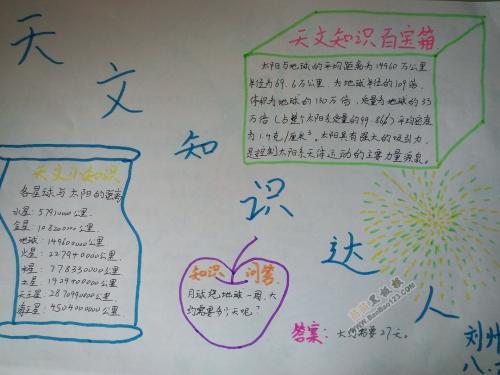 天文知识达人
天文知识百宝箱
太阳与地球的平均距离为14960万公里
半径为69.6万公里，为地球半径的109倍，
体积为地球的130万倍，质量为地球的33
万倍（占整个太阳系质量的99.86%）平均密度
为1.4克/厘米³。太阳具有强大的吸引力，
是控制太阳系天体运动的主要力量源泉。
天文小知识
各星球与太阳的距离
水星：57910000公里
金星：108200000公里
地球：149600000公里
火星：227940000公里
木星：778330000公里
土星：1429400000公里
天王星：2870990000公里
海王星：4504000000公里
知识问答
月球绕地球一周，大
约需要多少天呢？
答案：大约需要27天。
刘州
八.